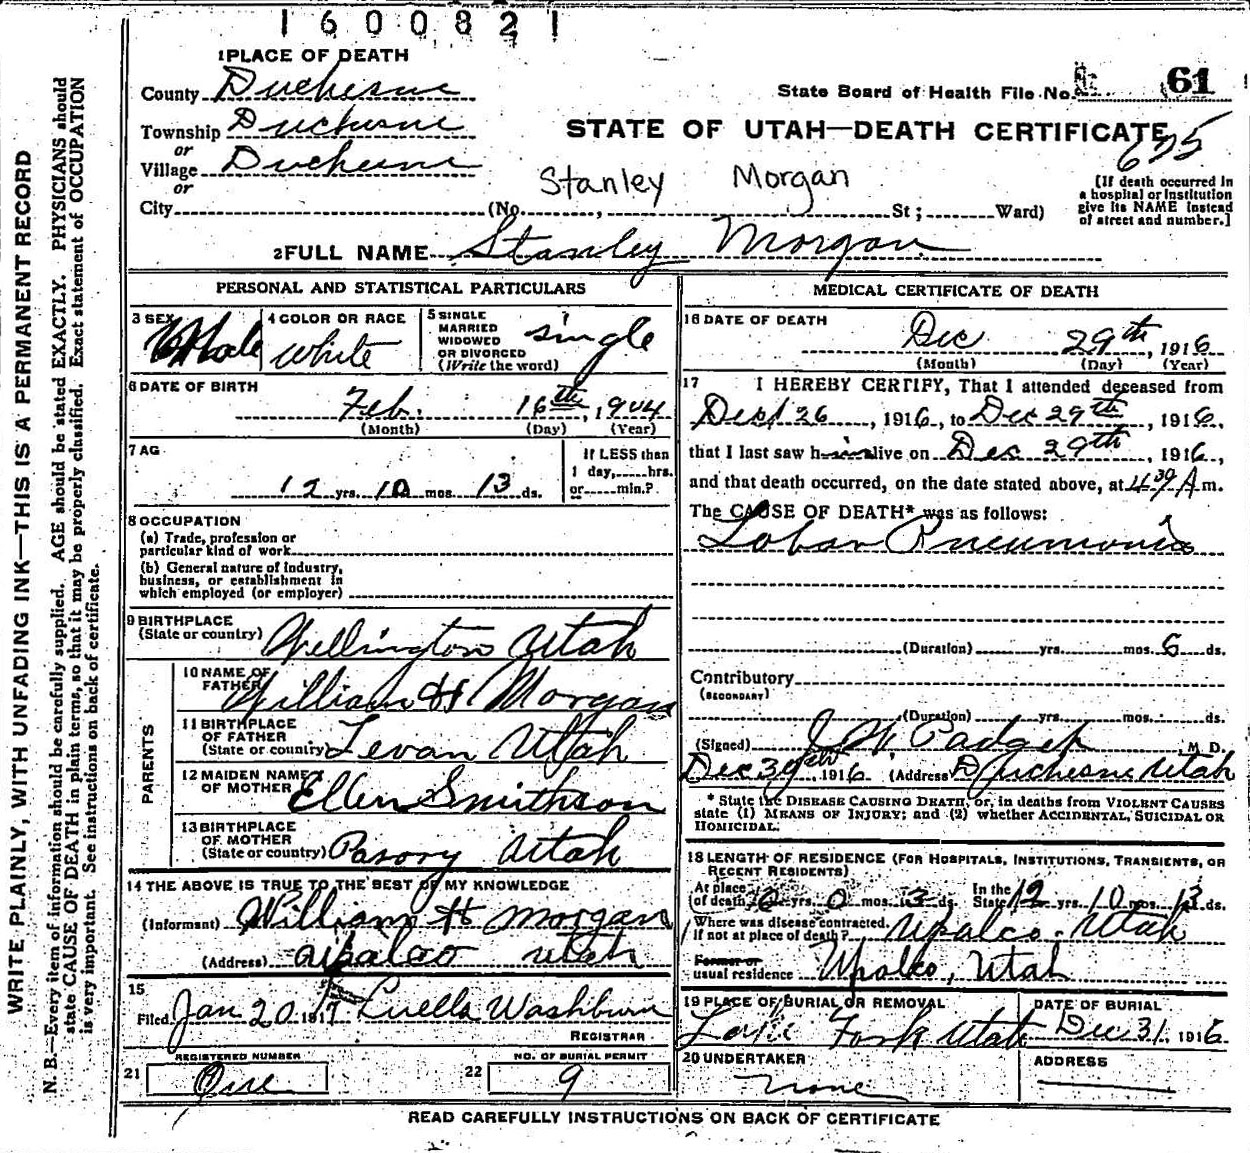 1600821
1 PLACE OF DEATH
County Duchesne
State Board of Health File No. 61
Township Duchesne
STATE OF UTAH—DEATH CERTIFICATE
675
or
Village Duchesne
or
Stanley Morgan
[If death occurred in a hospital or institution give its NAME instead of street and number.]
City (No. , St ; Ward)
2 FULL NAME Stanley Morgan
PERSONAL AND STATISTICAL PARTICULARS
3 SEX Male
4 COLOR OR RACE White
5 SINGLE MARRIED WIDOWED OR DIVORCED (Write the word) single
6 DATE OF BIRTH
Feb. 16th, 1904
(Month) (Day) (Year)
7 AG
12 yrs. 10 mos. 13 ds.
If LESS than 1 day, hrs. or min.?
8 OCCUPATION
(a) Trade, profession or
particular kind of work
(b) General nature of industry,
business, or establishment in
which employed (or employer)
9 BIRTHPLACE
(State or country) Wellington Utah
PARENTS
10 NAME OF FATHER William H Morgan
11 BIRTHPLACE OF FATHER (State or country) Levan Utah
12 MAIDEN NAME OF MOTHER Ellen Smithson
13 BIRTHPLACE OF MOTHER (State or country) Utah
14 THE ABOVE IS TRUE TO THE BEST OF MY KNOWLEDGE
(Informant) William H Morgan
(Address) Upalco Utah
15
Filed Jan 20 1917 Luella Washburn
REGISTRAR
REGISTERED NUMBER
21 One
NO. OF BURIAL PERMIT
22 9
MEDICAL CERTIFICATE OF DEATH
16 DATE OF DEATH
Dec 29th, 1916
(Month) (Day) (Year)
17 I HEREBY CERTIFY, That I attended deceased from
Dec 26, 1916, to Dec 29th, 1916,
that I last saw him alive on Dec 29th, 1916,
and that death occurred, on the date stated above, at 4 30 A m.
The CAUSE OF DEATH* was as follows:
Lobar Pneumonia
(Duration) yrs. mos. 6 ds.
Contributory
(SECONDARY)
(Duration) yrs. mos. ds.
(Signed) M D.
Dec 30th, 1916 (Address) Duchesne Utah
* State the DISEASE CAUSING DEATH, or, in deaths from VIOLENT CAUSES
state (1) MEANS OF INJURY; and (2) whether ACCIDENTAL, SUICIDAL OR
HOMICIDAL.
18 LENGTH OF RESIDENCE (FOR HOSPITALS, INSTITUTIONS, TRANSIENTS, OR
RECENT RESIDENTS)
At place of death 0 yrs. 0 mos. 3 ds. In the State 12 yrs. 10 mos. 13 ds.
Where was disease contracted,
If not at place of death? Upalco. Utah
Former or
usual residence Upalco, Utah
19 PLACE OF BURIAL OR REMOVAL
Fork Utah
DATE OF BURIAL
Dec 31, 1916
20 UNDERTAKER
none
ADDRESS
READ CAREFULLY INSTRUCTIONS ON BACK OF CERTIFICATE
WRITE PLAINLY, WITH UNFADING INK—THIS IS A PERMANENT RECORD
N. B.—Every item of information should be carefully supplied. AGE should be stated EXACTLY. PHYSICIANS should
state CAUSE OF DEATH in plain terms, so that it may be properly classified. Exact statement of OCCUPATION
is very important. See instructions on back of certificate.